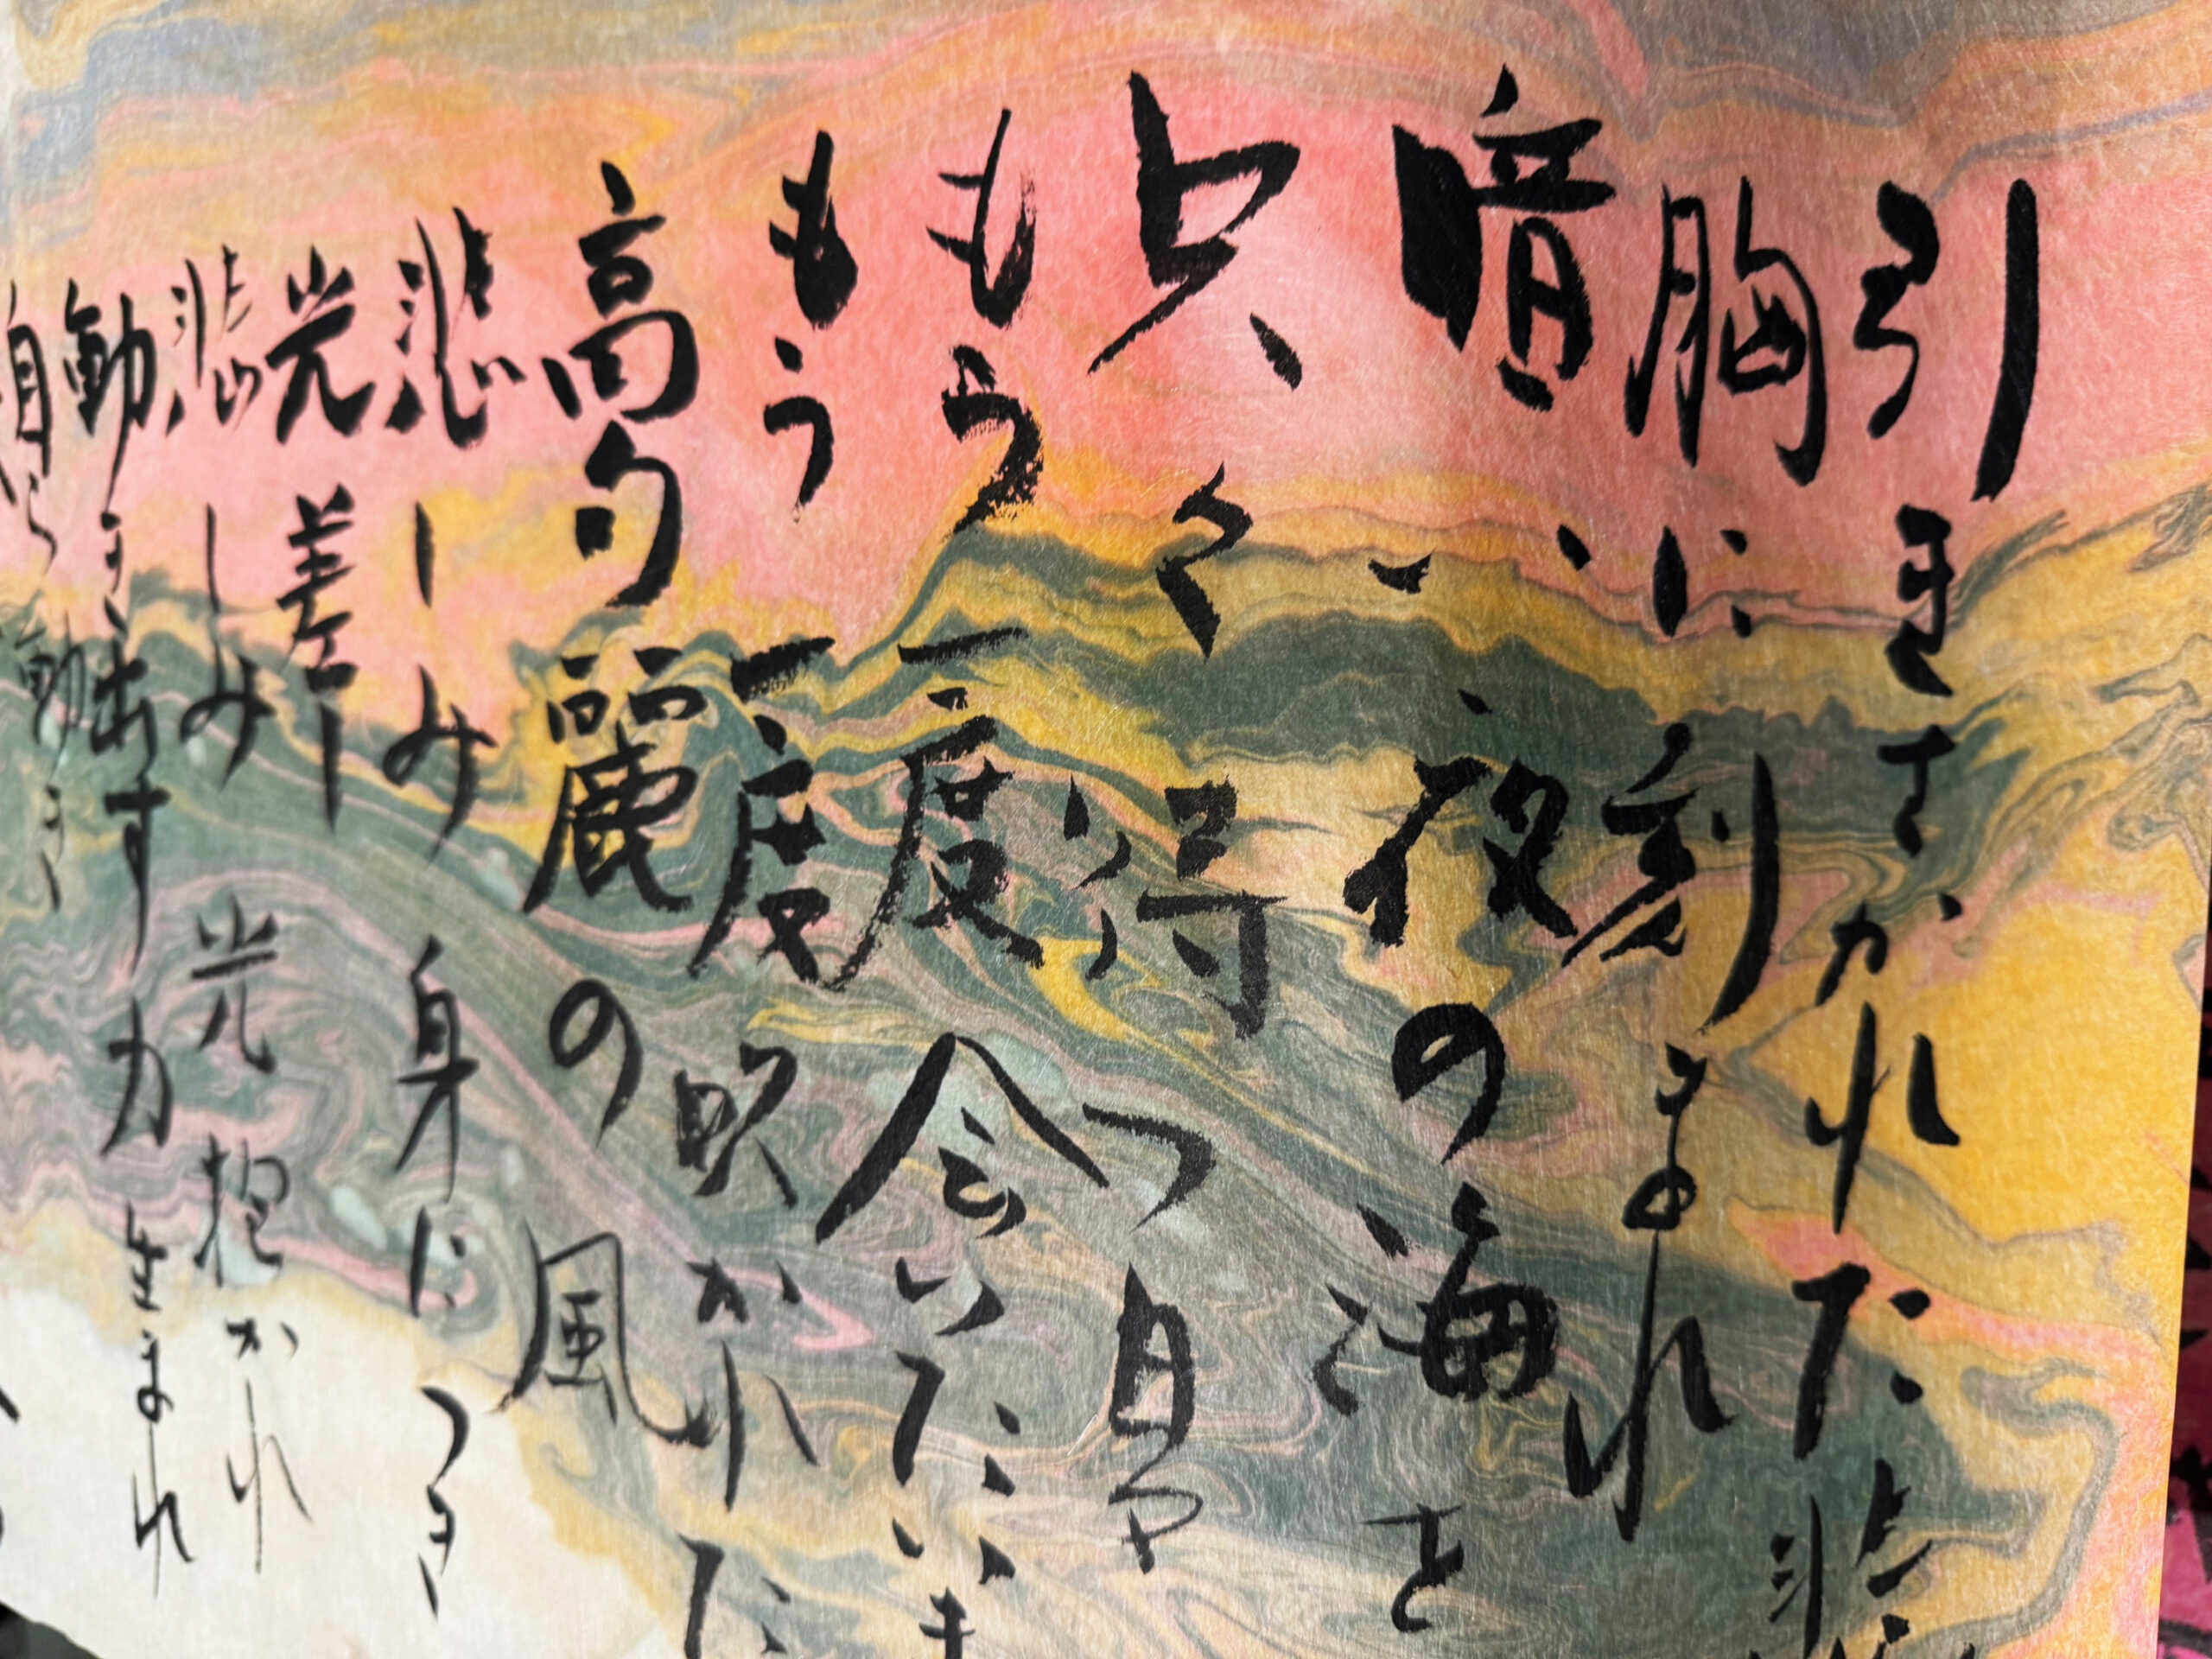 引きさかれた悲
胸に刻まれ
暗い夜の海を
只々得つ身や
もう一度会いたい
もう一度吹かれた
高句麗の風
悲しみ身につき
光差し
悲しみ光抱かれ
動き出す力生まれ
自ら動き